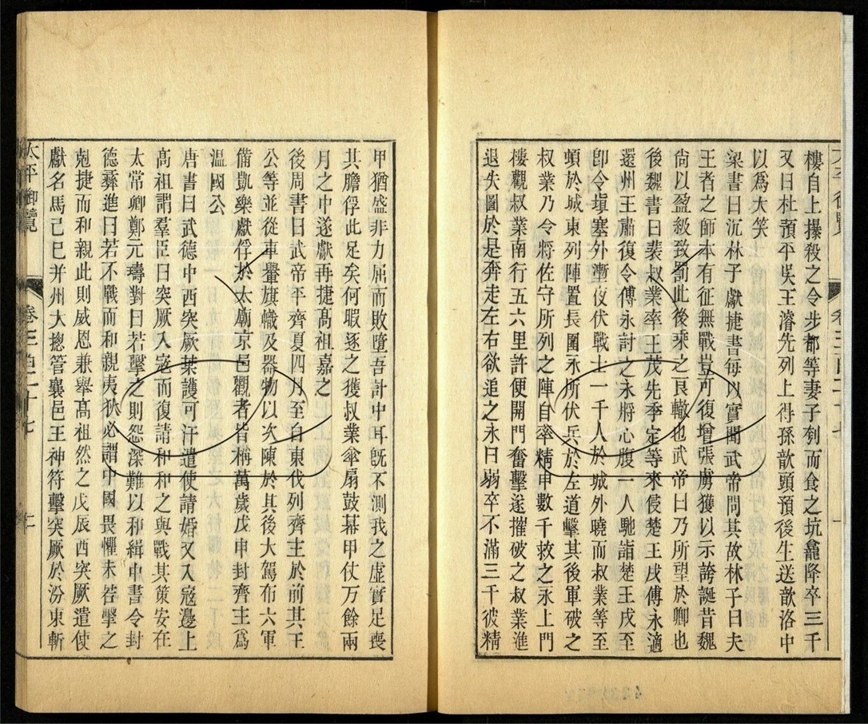 樓自上摷殺之令步都等妻子刳而食之坑龕降卒三千
又曰杜預平吳王濬先列上得孫歆頭預後生送歆洛中
以為大笑
梁書曰沉林子獻捷書每以實聞武帝問其故林子曰夫
王者之師本有征無戰豈可復增張虜獲以示誇誕昔魏
尚以盈級致罰此後乘之良轍也武帝曰乃所望於卿也
後魏書曰裴叔業率王茂先季定等來侵楚王戍傅永適
還州王肅復令傅永討之永將心腹一人馳詣楚王戍至
卽令塡塞外塹夜伏戰士一千人於城外曉而叔業等至
頓於城東列陣置長圍永所伏兵於左道擊其後軍破之
叔業乃令將佐守所列之陣自率精甲數千救之永上門
樓觀叔業南行五六里許便開門奮擊遂摧破之叔業進
退失圖於是奔走左右欲追之永曰弱卒不滿三千彼精
甲猶盛非力屈而敗墮吾計中耳旣不測我之虛實足喪
其膽俘此足矣何暇逐之獲叔業傘扇鼓幕甲仗万餘兩
月之中遂獻再捷髙祖嘉之
後周書曰武帝平齊夏四月至自東伐列齊主於前其王
公等並從車轝旗幟及器物以次陳於其後大駕布六軍
備凱樂獻俘於太廟京邑觀者皆稱萬歲戊申封齊主為
溫國公
唐書曰武德中西突厥葉護可汗遣使請婚又入寇邊上
髙祖謂羣臣曰突厥入寇而復請和和之與戰其策安在
太常卿鄭元璹對曰若擊之則怨深難以和緝中書令封
德彞進曰若不戰而和親夷狄必謂中國畏懼未若擊之
剋捷而和親此則威恩兼舉髙祖然之戊辰西突厥遣使
獻名馬己巳并州大摠管襄邑王神符擊突厥於汾東斬
太平御覽
卷三百二十七